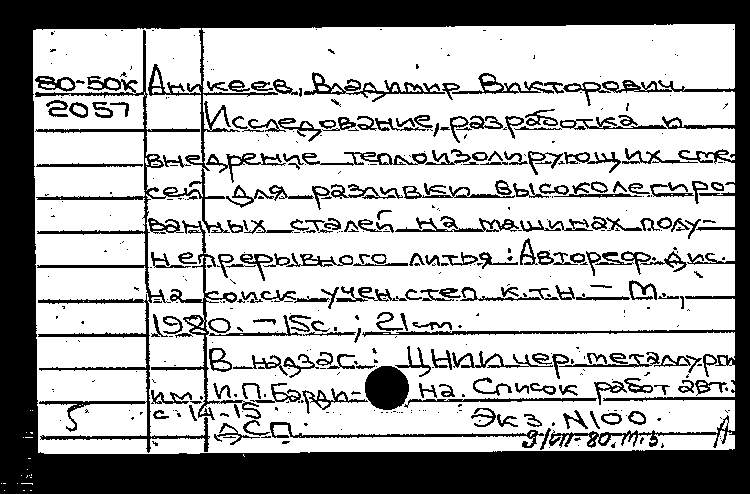 80-50к Аникеев, Владимир Викторович.
2057 Исследование, разработка и
внедрение теплоизолирующих сме-
сей для разливки высоколегиро-
ванных сталей на машинах полу-
непрерывного литья : Автореф. дис.
на соиск. учен. степ. к.т.н. – М.,
1980. – 15с. ; 21см.
В надзаг. : ЦНИИ чер. металлурги
им. И.П. Барди- на. Список работ авт.:
с. 14-15
5 ДСП. Экз. N100.
9/VII-80. М. 5. А